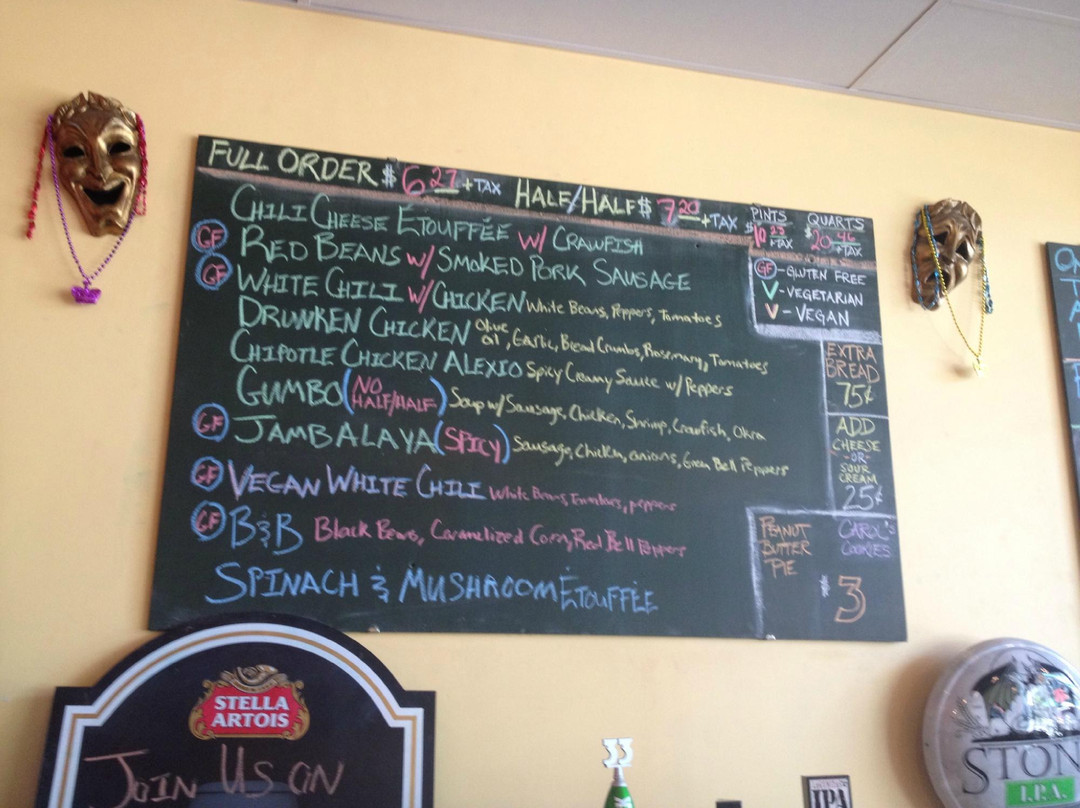 FULL ORDER $6 27 + TAX HALF/HALF $7 20 + TAX
CHILI CHEESE ÉTOUFFÉE W/ CRAWFISH
GF RED BEANS W/ SMOKED PORK SAUSAGE
GF WHITE CHILI W/ CHICKEN White Beans, Peppers, Tomatoes
DRUNKEN CHICKEN Olive Oil, Garlic, Bread Crumbs, Rosemary, Tomatoes
CHIPOTLE CHICKEN ALEXIO Spicy Creamy Sauce w/ Peppers
GUMBO (NO HALF/HALF) Soup w/ Sausage, Chicken, Shrimp, Crawfish, Okra
GF JAMBALAYA (SPICY) Sausage, Chicken, onions, Green Bell Peppers
GF VEGAN WHITE CHILI White Beans, Tomatoes, peppers
GF B&B Black Beans, Caramelized Corn, Red Bell Peppers
SPINACH & MUSHROOM ÉTOUFFÉE
PINTS QUARTS
$10 25 + TAX $20 46 + TAX
GF - GLUTEN FREE
V - VEGETARIAN
V - VEGAN
EXTRA
BREAD
75¢
ADD
CHEESE
-OR-
SOUR
CREAM
25¢
PEANUT
BUTTER
PIE
CAROL'S
COOKIES
$3
STELLA
ARTOIS
JOIN US ON
33
IPA
STON
I.P.A.